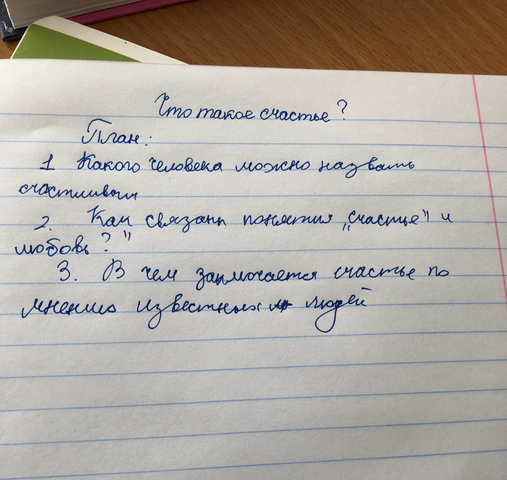 Что такое счастье?
План:
1 Какого человека можно назвать
счастливым
2. Как связаны понятия „счастье" и
любовь?"
3. В чем заключается счастье по
мнению известных людей